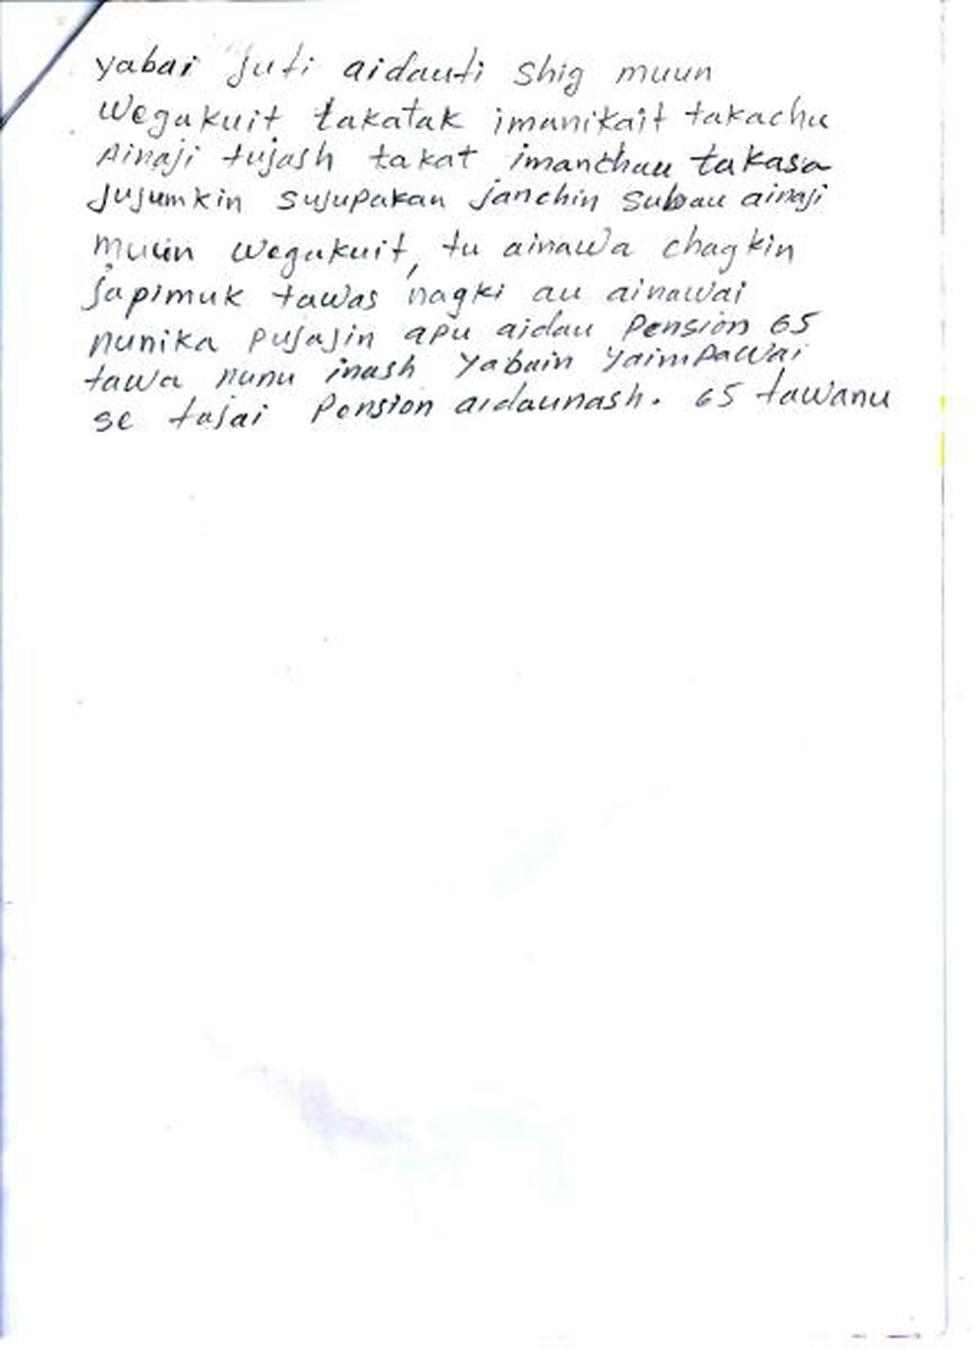 yabai juti aidauti shig muun
wegakuit takatak imanikait takachu
Ainaji tujash takat imanchau takasa
Jujumkin sujupakan janchin subau ainaji
muun wegakuit, tu ainawa chagkin
japimuk tawas nagki au ainawai
nunika pujajin apu aidau Pension 65
tawa nunu inash yabain yaimpawai
se tajai Pension aidaunash. 65 tawanu